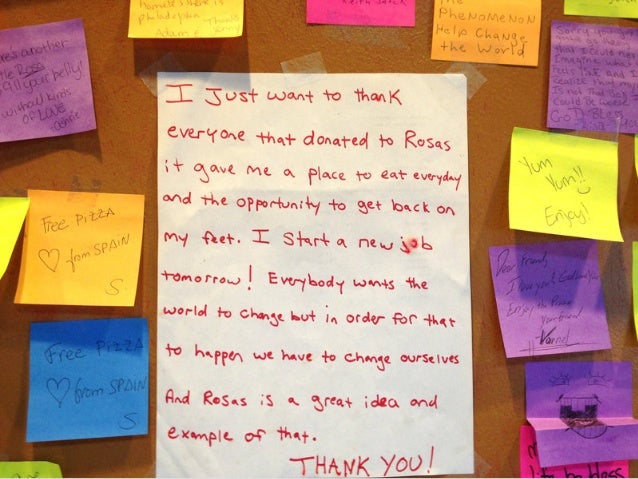 homeless there is
philadelphia
Thanks
Adam &
Keith
PheNoMeNoN
Help Change
the World
another
Rosa
fill your belly!
without kinds
OF LOVE
I Just want to thank
everyone that donated to Rosas
it gave me a place to eat everyday
and the opportunity to get back on
my feet. I Start a new job
tomorrow! Everybody wants the
world to change but in order for that
to happen we have to change ourselves
And Rosas is a great idea and
example of that.
THANK YOU!
Free PizzA
♡ from SPAIN
S.
Free PizzA
♡ from SPAIN
S
Sorry
that I could not
Imagine what
is not that Bad
could be worse
GoD Bless
Yum
Yum!!
Enjoy!
Dear Friend,
Enjoy the Pizza
your friend